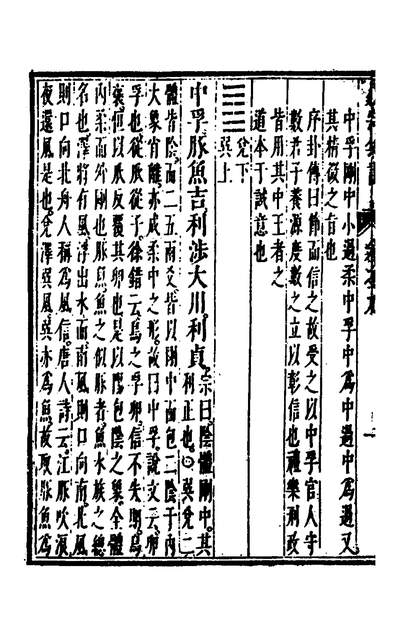 中孚剛中小過柔中孚中為中過中為過又
其精微之旨也
序卦傳曰節而信之故受之以中孚官人守
數君子養源度數之立以彰信也禮樂刑政
皆用其中王者之
道本于誠意也
兌下
巽上
中孚豚魚吉利涉大川利貞宗曰陰體剛中其
利正也巽兌二
體皆陰而二五兩爻皆以剛中而包二陰于內
大象肖離亦成柔中之形故曰中孚說文云卵
孚也從爪從子徐鍇云鳥之孚卵信不失期鳥
裒恒以爪反覆其卵也是以陽包陰之象全體
內柔而外剛也豚魚魚之似豚者魚水族之總
名也澤將有風浮出水面南風則口向南北風
則口向北舟人稱為風信唐人詩云江豚吹浪
夜還風是也兌澤巽風巽亦為魚故取豚魚為